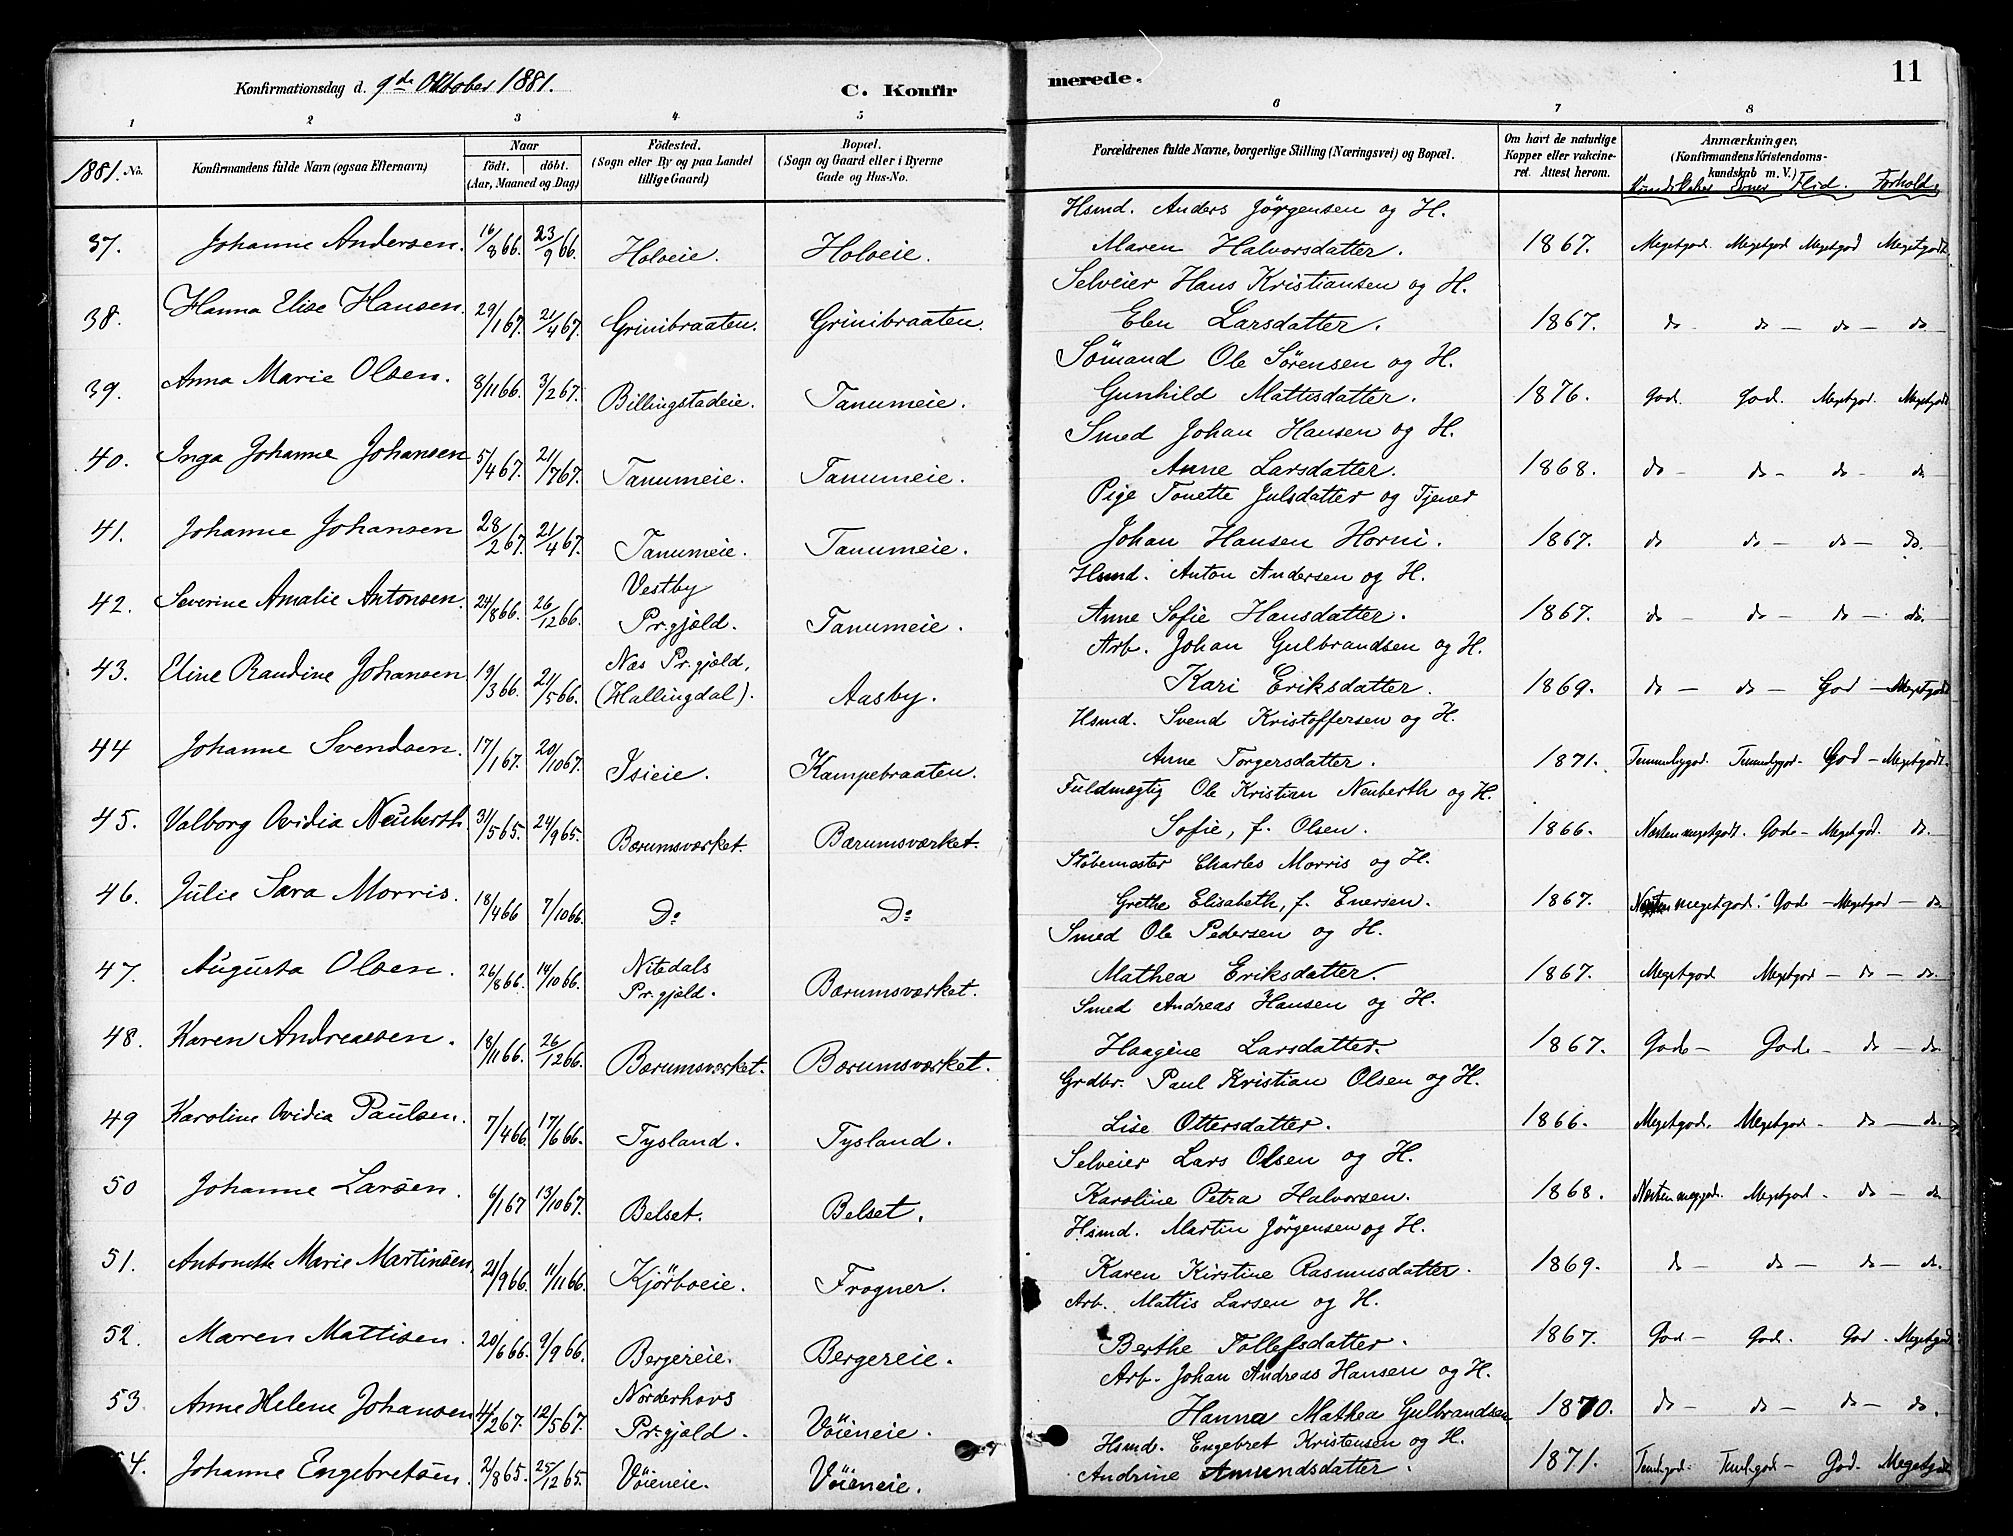 11
Konfirmationsdag d. 9de Oktober 1881. C. Konfirmerede.
1 2 3 4 5 6 7 8
1881. No. Konfirmandens fulde Navn (ogsaa Efternavn) Naar födt. döbt. (Aar, Maaned og Dag) Födested. (Sogn eller By og paa Landet tillige Gaard) Bopæl. (Sogn og Gaard eller i Byerne Gade og Hus-No. Forældrenes fulde Navne, borgerlige Stilling (Næringsvei) og Bopæl. Om havt de naturlige Kopper eller vakcineret. Attest herom. Anmærkninger, (Konfirmandens Kristendomskundskab m. V.)
Kundskaber Evner Flid. Forhold.
Hsmd. Anders Jörgensen og H.
37. Johanne Andersen. 16/8 66. 23/9 66. Holveie. Holveie. Maren Halvorsdatter. 1867. Megetgod. Megetgod Megetgod Megetgodt
Selveier Hans Kristiansen og H.
38. Hanna Elise Hansen. 29/1 67. 21/4 67. Grinibraaten. Grinibraaten. Elen Larsdatter. 1867. do do – do – do
Sömand Ole Sörensen og H.
39. Anna Marie Olsen. 8/11 66. 3/2 67. Billingstadeie. Tanumeie. Gunhild Mattisdatter. 1876. God. God. Megetgod. Megetgodt
Smed Johan Hansen og H.
40. Inga Johanne Johansen 5/4 67. 21/7 67. Tanumeie. Tanumeie. Anne Larsdatter. 1868. do – do – do – do
Pige Tonette Julsdatter og Tjener
41. Johanne Johansen 28/2 67. 21/4 67. Tanumeie. Tanumeie. Johan Hansen Horni. 1867. do do – do – do.
Hsmd. Anton Andersen og H.
42. Severine Amalie Antonsen. 24/8 66. 26/12 66. Vestby Pr.gjeld. Tanumeie. Anne Sofie Hansdatter. 1867. do – do – do – do.
Arb. Johan Gulbrandsen og H.
43. Eline Randine Johansen 19/3 66. 21/5 66. Næs Pr.gjeld, (Hallingdal). Aasby. Kari Eriksdatter. 1869. do – do – God – Megetgodt
Hsmd. Svend Kristoffersen og H.
44 Johanne Svendsen. 17/1 67. 20/10 67. Isieie. Kampebraaten. Anne Torgersdatter. 1871. Temmeliggod. Temmeliggod. God – Megetgodt.
Fuldmægtig Ole Kristian Neuberth og H.
45. Valborg Ovidia Neuberth. 31/5 65. 24/9 65. Bærumsværket. Bærumsværket. Sofie, f. Olsen. 1866. Næsten megetgodt. God – Megetgod. do.
Støbemester Charles Morris og H.
46. Julie Sara Morris. 18/4 66 7/10 66. Do Do Grethe Elisabeth, f. Enersen. 1867. Næsten megetgod. God – Megetgod – do.
Smed Ole Pedersen og H.
47. Augusta Olsen. 26/8 66. 14/10 66. Nitedals Pr.gjeld. Bærumsværket. Mathea Eriksdatter. 1867. Megetgod Megetgod – do – do.
Smed Andreas Hansen og H.
48. Karen Andreasen. 18/11 66. 26/12 66. Bærumsværket. Bærumsværket. Haagine Larsdatter. 1867. God – God – do – do.
Grdbr. Paul Kristian Olsen og H.
49 Karoline Ovidia Paulsen. 7/4 66. 17/6 66. Tysland. Tysland. Lise Ottersdatter. 1866. Megetgod. Megetgod. – do – do.
Selveier Lars Olsen og H.
50 Johanne Larsen. 6/1 67 13/10 67. Belset. Belset. Karoline Petra Halvorsen. 1868. Næsten meggod. Megetgod. do – do
Hsmd. Martin Jörgensen og H.
51. Antonette Marie Martinsen. 21/9 66. 11/11 66. Kjörboeie. Frogner. Karen Kirstine Rasmusdatter. 1869. do – do – do – do.
Arb. Mattis Larsen og H.
52. Maren Mattisen. 20/6 66. 9/9 66. Bergereie. Bergereie. Berthe Tollefsdatter. 1867. God – God. God – Megetgodt
Arb. Johan Andreas Hansen og H.
53. Anne Helene Johansen 4/2 67. 12/5 67. Norderhovs Pr.gjeld. Vöieneie. Hanna Mathea Gulbrandsen 1870. do – do – do – do.
Hsmd. Engebret Kristensen og H.
54. Johanne Engebretsen. 2/8 65. 25/12 65. Vöieneie. Vöieneie. Andrine Amundsdatter. 1871. Temlgod. Temlgod – God. Megetgodt